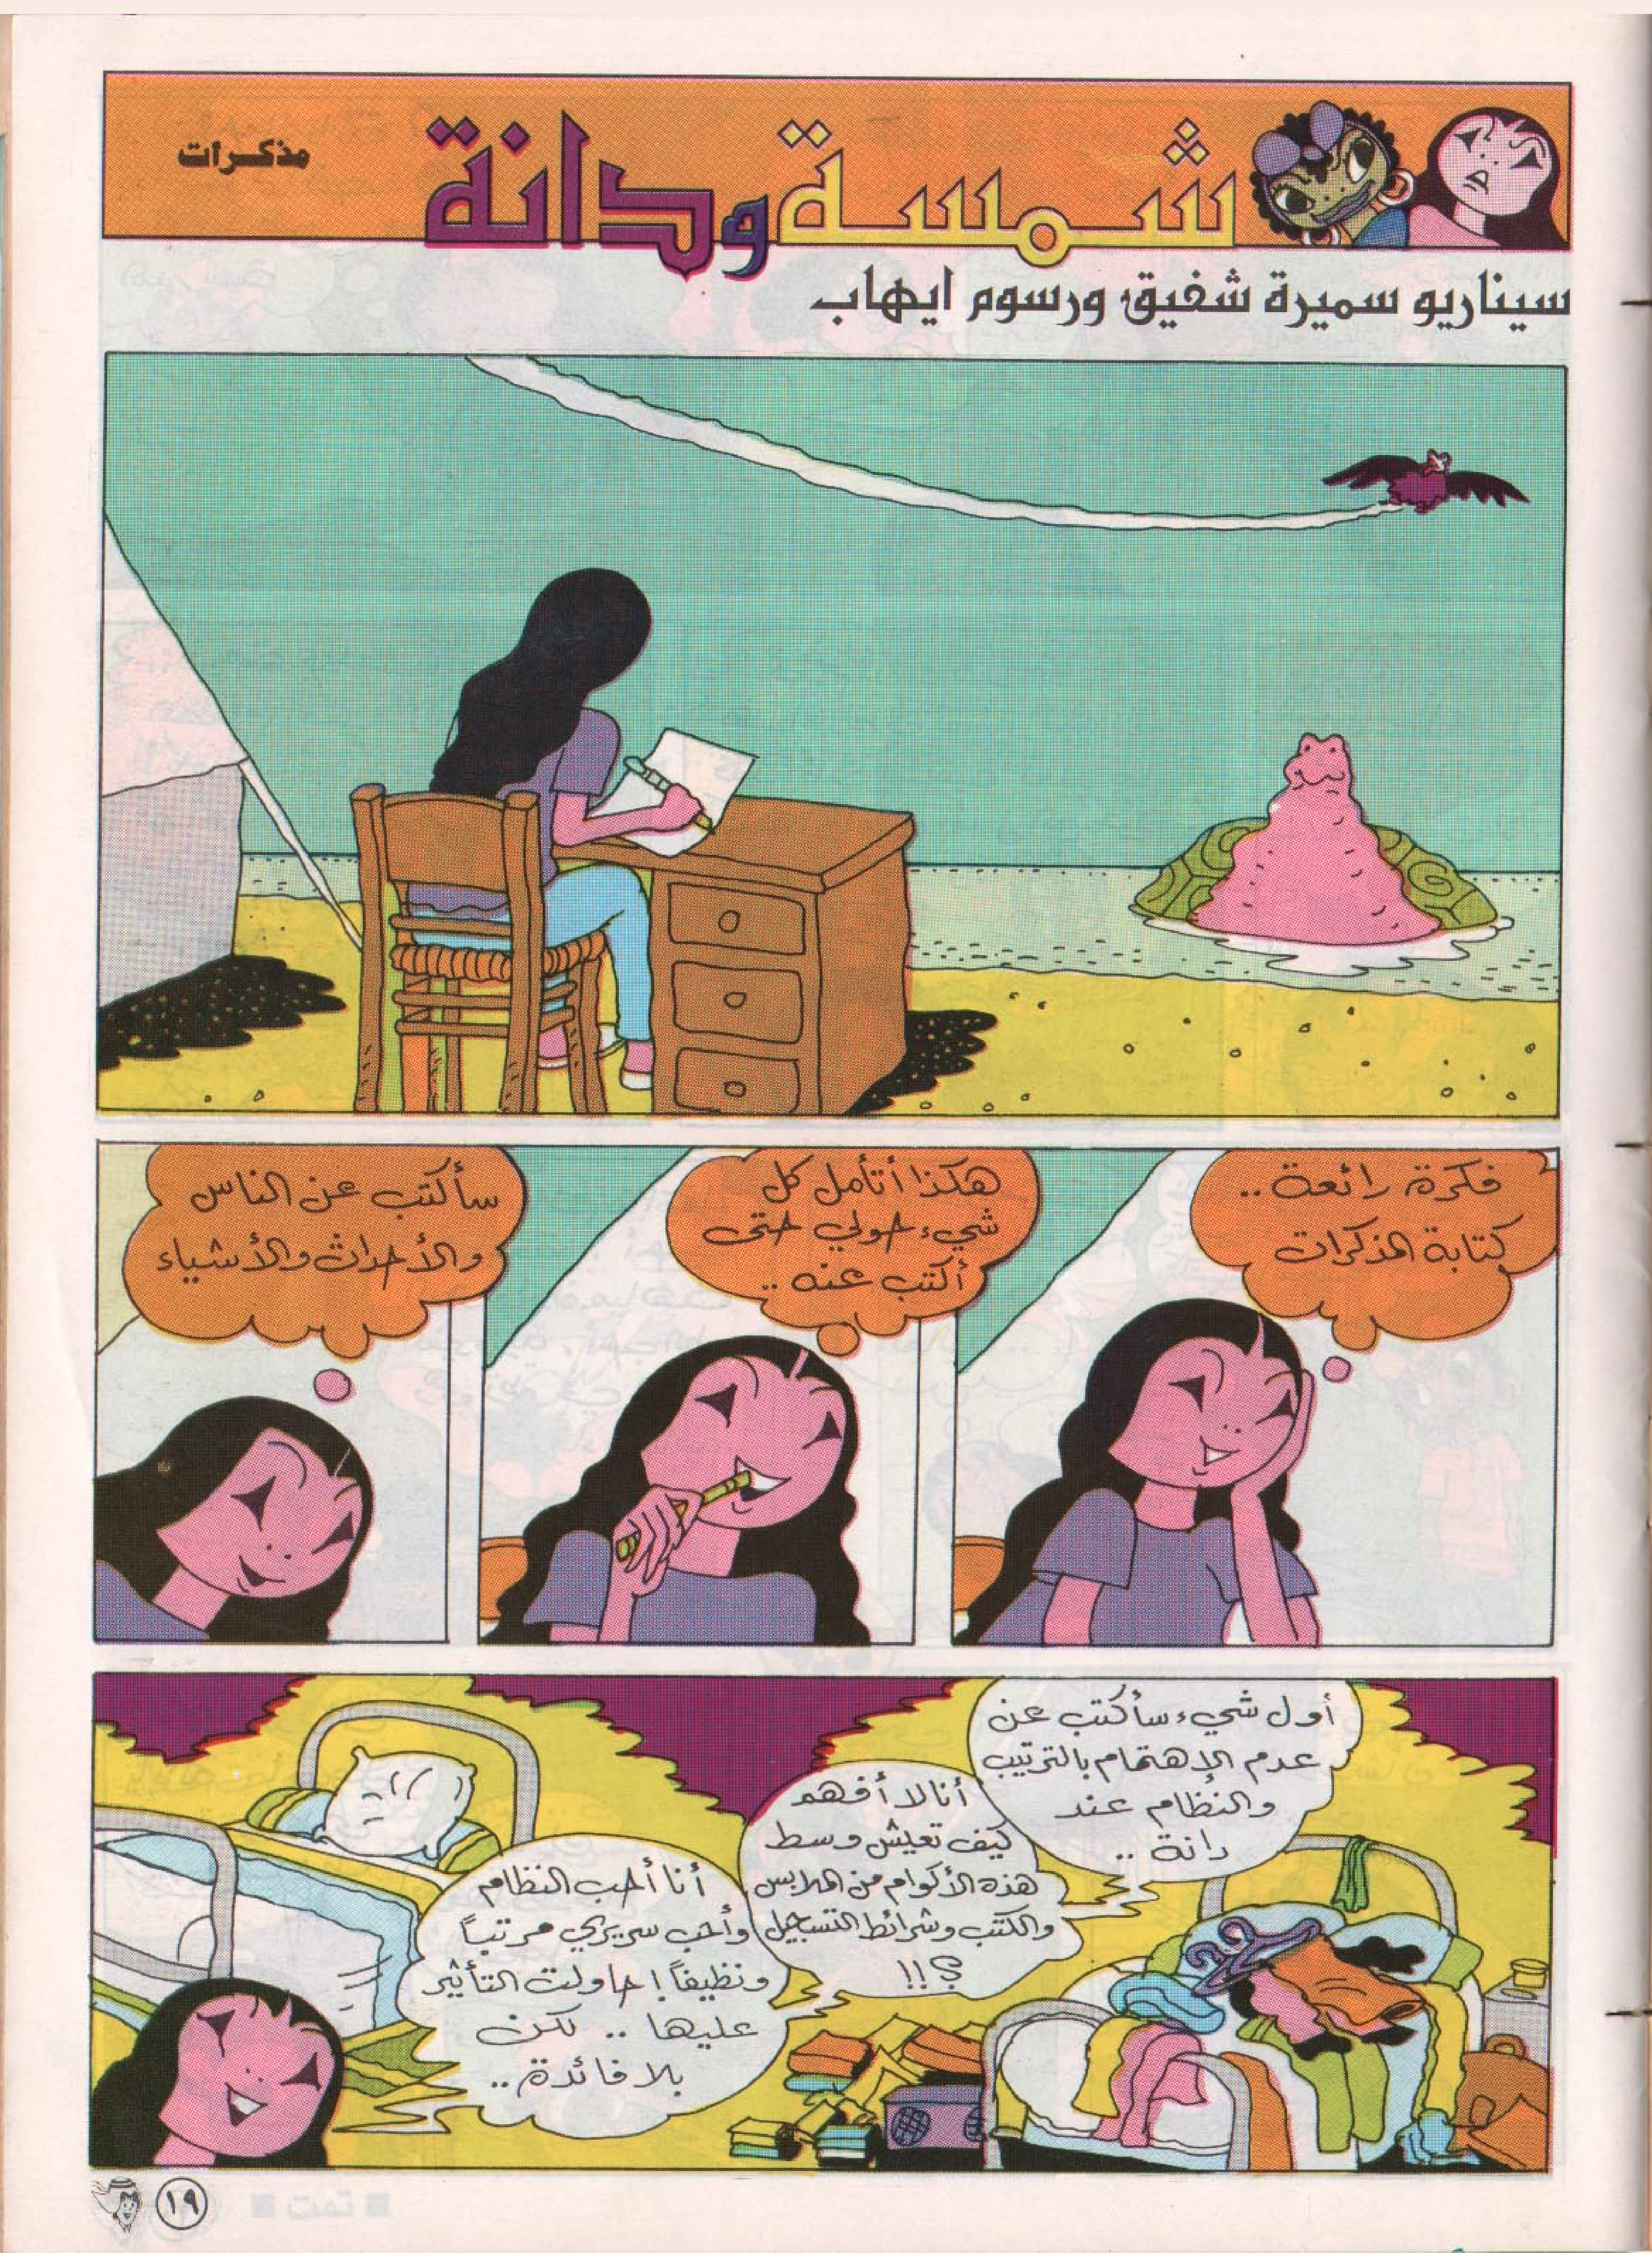 شمسة ودانة
مذكرات
سيناريو سميرة شفيق ورسوم ايهاب
فكرة رائعة ..
كتابة المذكرات
هكذا أتأمل كل
شيء حولي حتى
أكتب عنه ..
سأكتب عن الناس
والأحداث والأشياء
أول شيء سأكتب عن
عدم الإهتمام بالترتيب
والنظام عند
دانة ..
أنا لا أفهم
كيف تعيش وسط
هذه الأكوام من الملابس
والكتب وشرائط التسجيل
؟!!
أنا أحب النظام
وأحب سريري مرتباً
ونظيفاً ! حاولت التأثير
عليها .. لكن
بلا فائدة ..
١٩